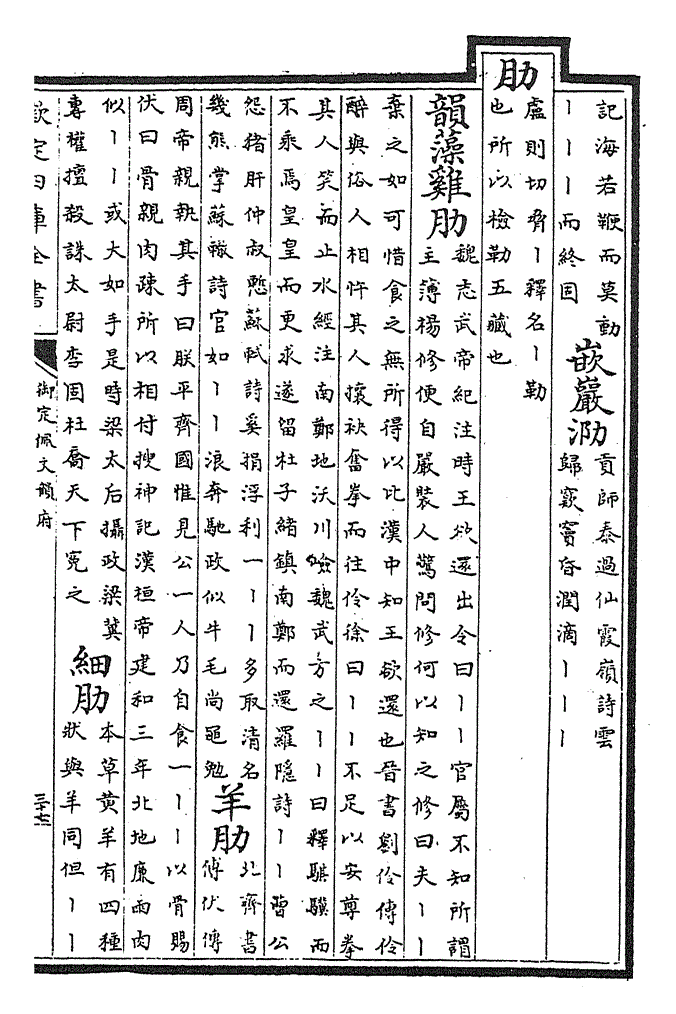 記海若鞭而莫動
丨丨丨而終固
嵌巖泐
貢師泰過仙霞嶺詩雲
歸竅竇昏潤滴丨丨丨
肋
盧則切脅丨釋名丨勒
也所以檢勒五臟也
韻藻雞肋
魏志武帝紀注時王欲還出令曰丨丨官屬不知所謂
主簿楊修便自嚴裝人驚問修何以知之修曰夫丨丨
棄之如可惜食之無所得以比漢中知王欲還也晉書劉伶傳伶
醉與俗人相忤其人攘袂奮拳而往伶徐曰丨丨不足以安尊拳
其人笑而止水經注南鄭地沃川險魏武方之丨丨曰釋騏驥而
不乘焉皇皇而更求遂留杜子緒鎮南鄭而還羅隱詩丨丨曹公
怨猪肝仲叔慙蘇軾詩奚捐浮利一丨丨多取清名
幾熊掌蘇轍詩官如丨丨浪奔馳政似牛毛尚黽勉
羊肋
北齊書
傅伏傳
周帝親執其手曰朕平齊國惟見公一人乃自食一丨丨以骨賜
伏曰骨親肉疎所以相付搜神記漢桓帝建和三年北地亷雨肉
似丨丨或大如手是時梁太后攝政梁冀
專權擅殺誅太尉李固杜喬天下冤之
細肋
本草黄羊有四種
狀與羊同但丨丨
欽定四庫全書
御定佩文韻府